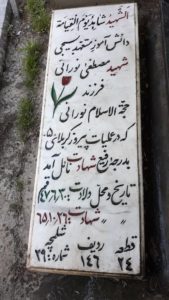 الشهید شاهد یوم القیامة
دانش آموز متعهد بسیجی
شهید مصطفی نورائی
فرزند
حجة الاسلام نورائی
که در عملیات پیروز کربلای ۵
بدرجه رفیع شهادت نائل آمد
تاریخ و محل ولادت: ۴۷/۶/۳
〃 〃 شهادت: ۶۵/۱۰/۲۶ شلمچه
قطعه ردیف شماره:
۲۴ ۱۴۶ ۲۹